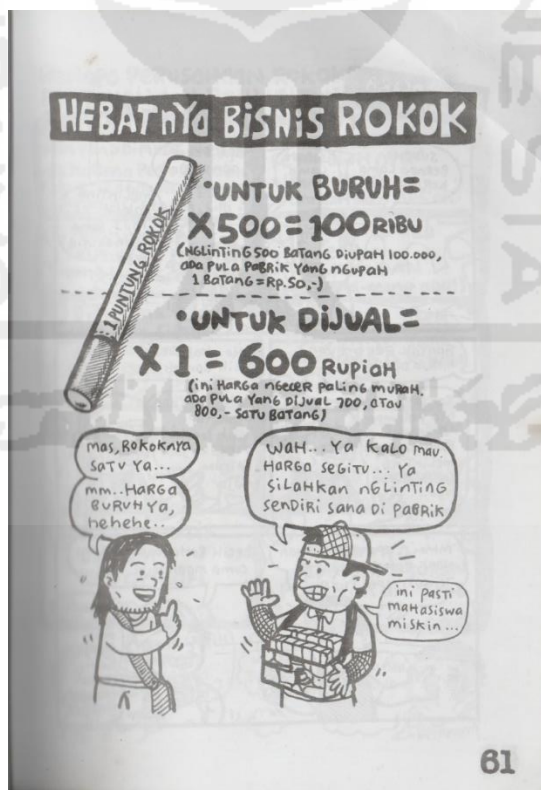 HEBATNYA BISNIS ROKOK
1 PUNTUNG ROKOK
•UNTUK BURUH=
X500=100 RIBU
(NGLINTING 500 BATANG DIUPAH 100.000,
ADA PULA PABRIK YANG NGUPAH
1 BATANG=RP.50,-)
•UNTUK DIJUAL=
X 1 = 600 RUPIAH
(INI HARGA NGECER PALING MURAH.
ADA PULA YANG DIJUAL 700, ATAU
800,- SATU BATANG)
MAS, ROKOKNYA
SATU YA...
MM..HARGA
BURUH YA,
HEHEHE..
WAH... YA KALO MAU
HARGA SEGITU... YA
SILAHKAN NGLINTING
SENDIRI SANA DI PABRIK
INI PASTI
MAHASISWA
MISKIN...
61